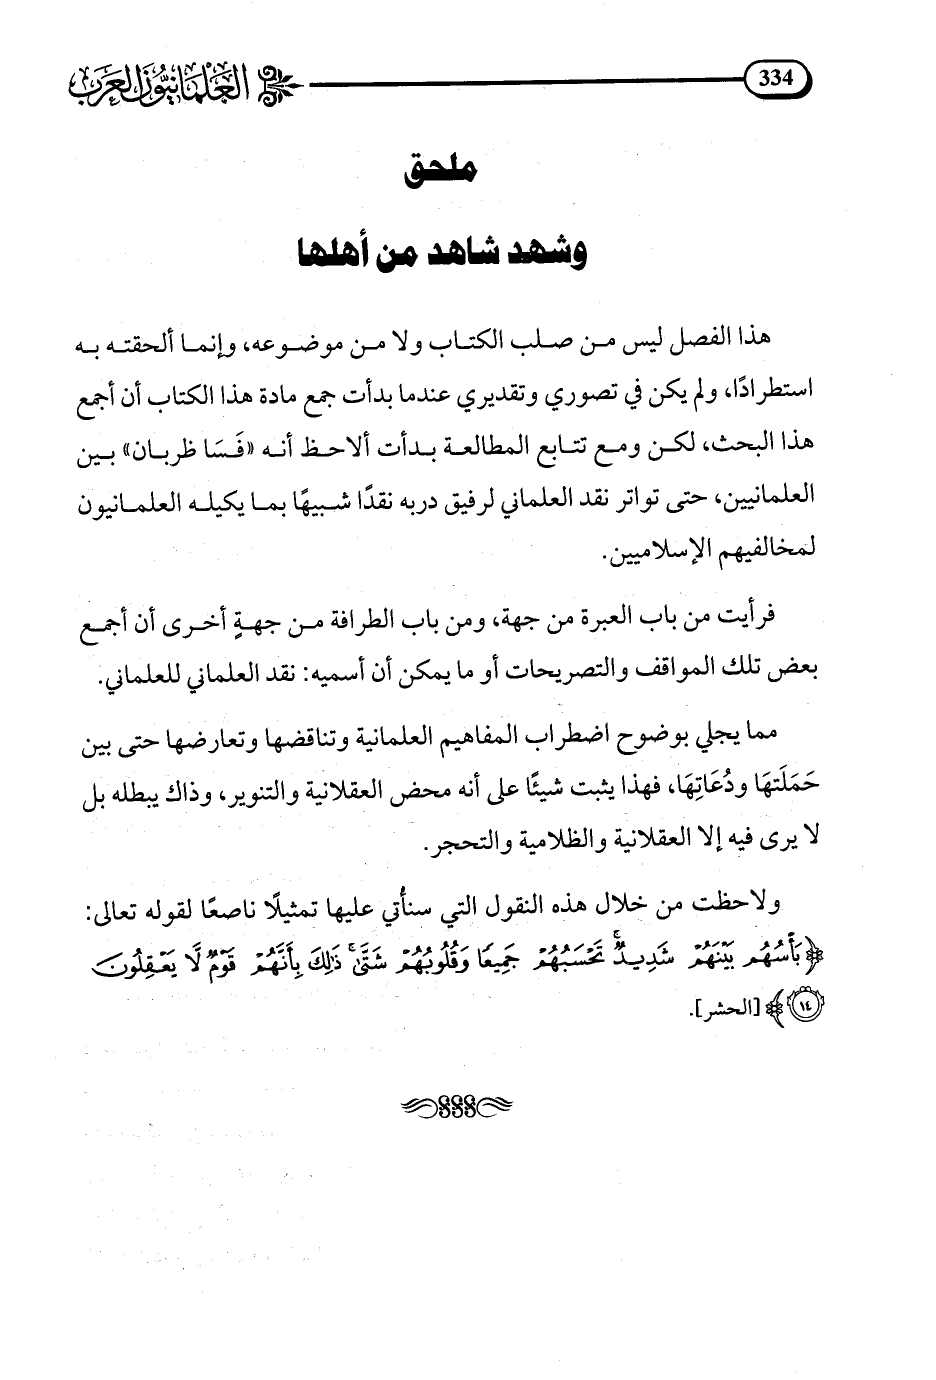 العلمانيون العرب
334
ملحق
وشهد شاهد من أهلها
هذا الفصل ليس من صلب الكتاب ولا من موضوعه، وإنما ألحقته به
استطرادًا، ولم يكن في تصوري وتقديري عندما بدأت جمع مادة هذا الكتاب أن أجمع
هذا البحث، لكن ومع تتابع المطالعة بدأت ألاحظ أنه «فَسَا ظربان» بين
العلمانيين، حتى تواتر نقد العلماني لرفيق دربه نقدًا شبيهًا بما يكيله العلمانيون
لمخالفيهم الإسلاميين.
فرأيت من باب العبرة من جهة، ومن باب الطرافة من جهةٍ أخرى أن أجمع
بعض تلك المواقف والتصريحات أو ما يمكن أن أسميه: نقد العلماني للعلماني.
مما يجلي بوضوح اضطراب المفاهيم العلمانية وتناقضها وتعارضها حتى بين
حَمَلَتهَا ودُعَاتِهَا، فهذا يثبت شيئًا على أنه محض العقلانية والتنوير، وذاك يبطله بل
لا يرى فيه إلا العقلانية والظلامية والتحجر.
ولاحظت من خلال هذه النقول التي سنأتي عليها تمثيلًا ناصعًا لقوله تعالى:
﴿بَأْسُهُم بَيْنَهُمْ شَدِيدٌ ۚ تَحْسَبُهُمْ جَمِيعًا وَقُلُوبُهُمْ شَتَّىٰ ۚ ذَٰلِكَ بِأَنَّهُمْ قَوْمٌ لَّا يَعْقِلُونَ
١٤﴾ [الحشر].